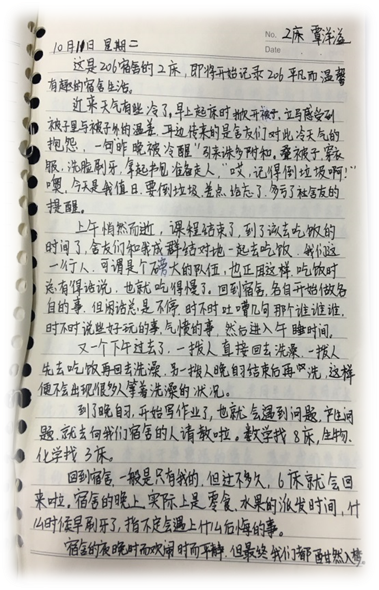 No. 2床 覃洋溢
10月11日 星期二
Date
这是206宿舍的2床,即将开始记录206平凡而温馨
有趣的宿舍生活。
近来天气有些冷了,早上起床时掀开被子,立马感受到
被子里与被子外的温差,耳边传来的是舍友们对此冷天气的
抱怨,一句“昨晚被冷醒”引来诸多附和。叠被子,穿衣
服,洗脸刷牙,拿起书包准备走人,“哎,记得倒垃圾啊!”
噢,今天是我值日,要倒垃圾,差点忘了,多亏了社舍友的
提醒。
上午悄然而逝,课程结束了,到了该去吃饭的
时间了,舍友们和我成群结对地一起去吃饭,我们这
一行人,可谓是个庞大的队伍,也正因这样,吃饭时
总有得话说,也就吃得慢了。回到宿舍,各自开始做各
自的事,但闲话总是不停,时不时吐嘈几句那个谁谁谁,
时不时说些好玩的事,气愤的事,然后进入午睡时间。
又一个下午过去了,一拨人直接回去洗澡,一拨人
先去吃饭再回去洗澡,另一拨人晚自习结束后再洗,这样
便不会出现很多人等着洗澡的状况。
到了晚自习,开始写作业了,也就会遇到问题,
问题,就去向我们宿舍的人请教啦。数学找8床,生物、
化学找3床。
回到宿舍,一般是只有我的,但过不多久,6床就会回
来啦。宿舍的晚上,实际上是零食、水果的派发时间,什
么时候早刷牙了,指不定会遇上什么后悔的事。
宿舍的夜晚时而欢闹时而平静,但最终我们都酣然入梦。